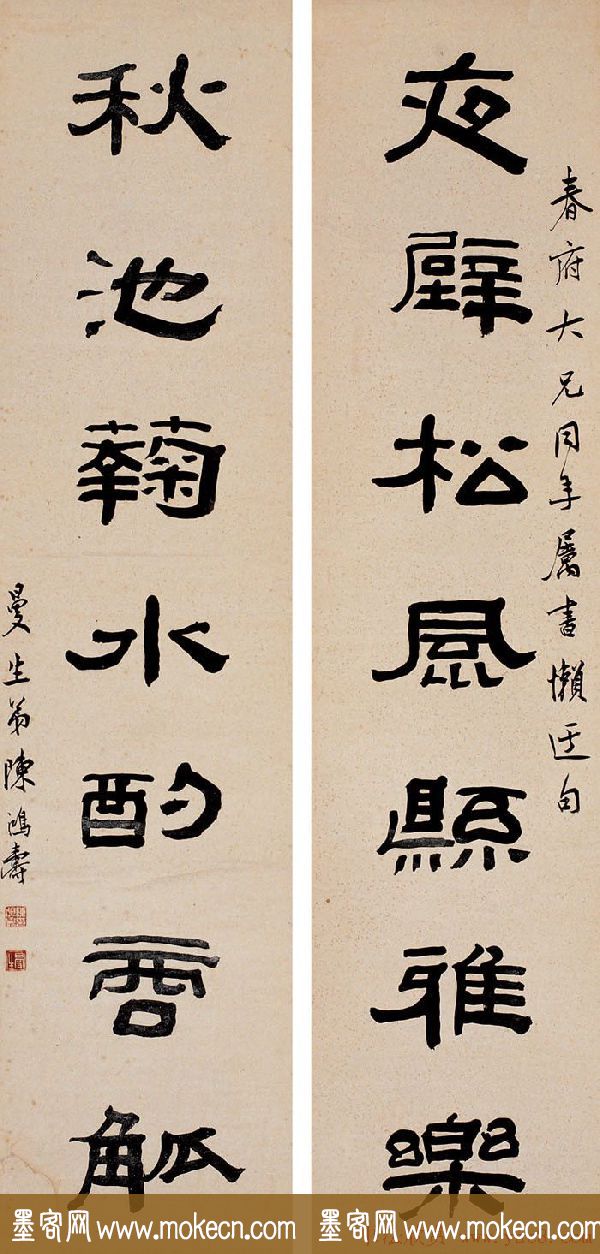 夜壁松風縣雅樂
春府大兄同年屬書懶迂句
秋池蘜水酌觚
曼生弟陳鴻壽
墨客网www.mokecn.com
墨客网www.mokecn.com